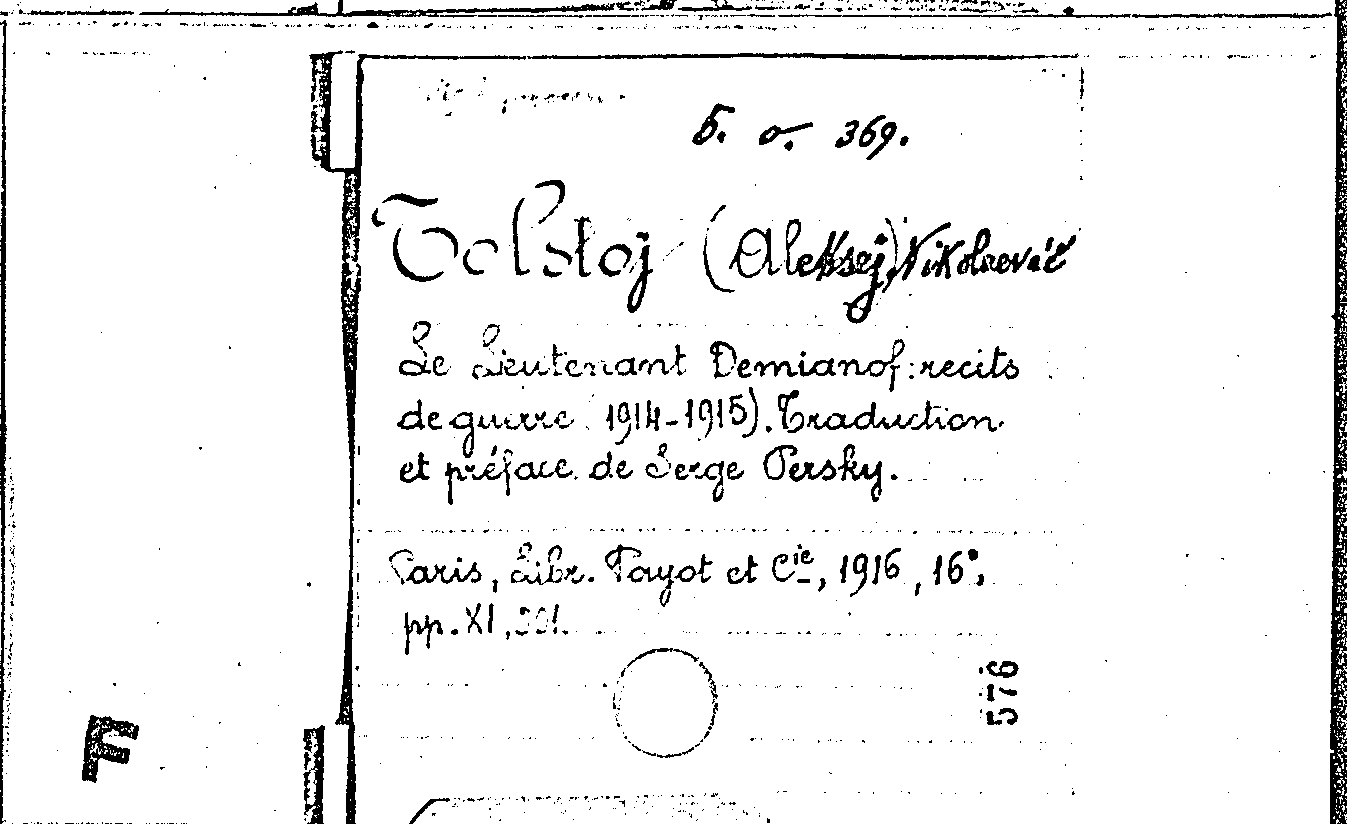 5. σ. 369.
Tolstoj (Aleksej) Nikolaevič
Le Lieutenant Demianof: recits
de guerre (1914-1915). Traduction
et préface de Serge Persky.
Paris, Libr. Payot et Cie, 1916, 16°,
pp. XI,
576
F